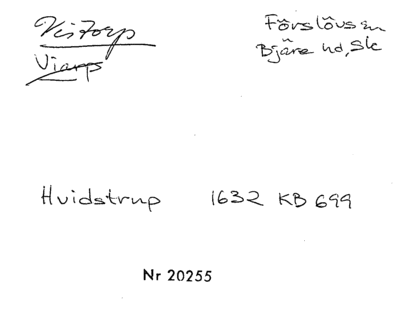 Vistorp
Viarps
Förslövs sn
Bjäre hd, Sk
Hvidstrup 1632 KB 699
Nr 20255